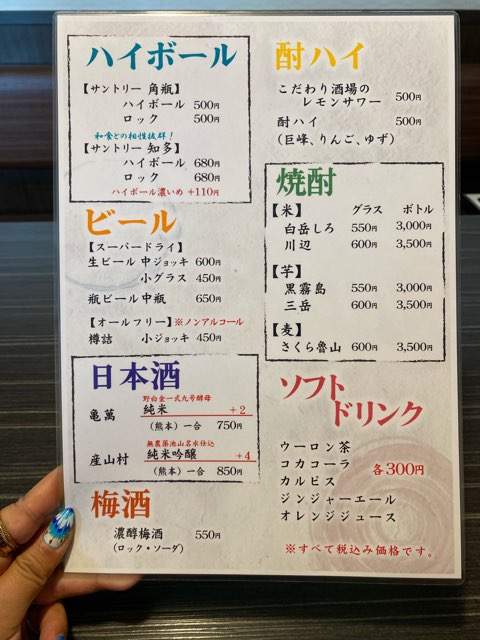 ハイボール
【サントリー 角瓶】
ハイボール 500円
ロック 500円
和食との相性抜群！
【サントリー 知多】
ハイボール 680円
ロック 680円
ハイボール濃いめ +110円
ビール
【スーパードライ】
生ビール 中ジョッキ 600円
小グラス 450円
瓶ビール 中瓶 650円
【オールフリー】※ノンアルコール
樽詰 小ジョッキ 450円
日本酒
野白金一式九号酵母
亀萬 純米 +2
(熊本) 一合 750円
無農薬池山名水仕込
産山村 純米吟醸 +4
(熊本) 一合 850円
梅酒
濃醇梅酒 550円
(ロック・ソーダ)
酎ハイ
こだわり酒場の
レモンサワー 500円
酎ハイ 500円
(巨峰、りんご、ゆず)
焼酎
【米】 グラス ボトル
白岳しろ 550円 3,000円
川辺 600円 3,500円
【芋】
黒霧島 550円 3,000円
三岳 600円 3,500円
【麦】
さくら魯山 600円 3,500円
ソフト
ドリンク
ウーロン茶
コカコーラ
カルピス
ジンジャーエール
オレンジジュース
各300円
※すべて税込み価格です。